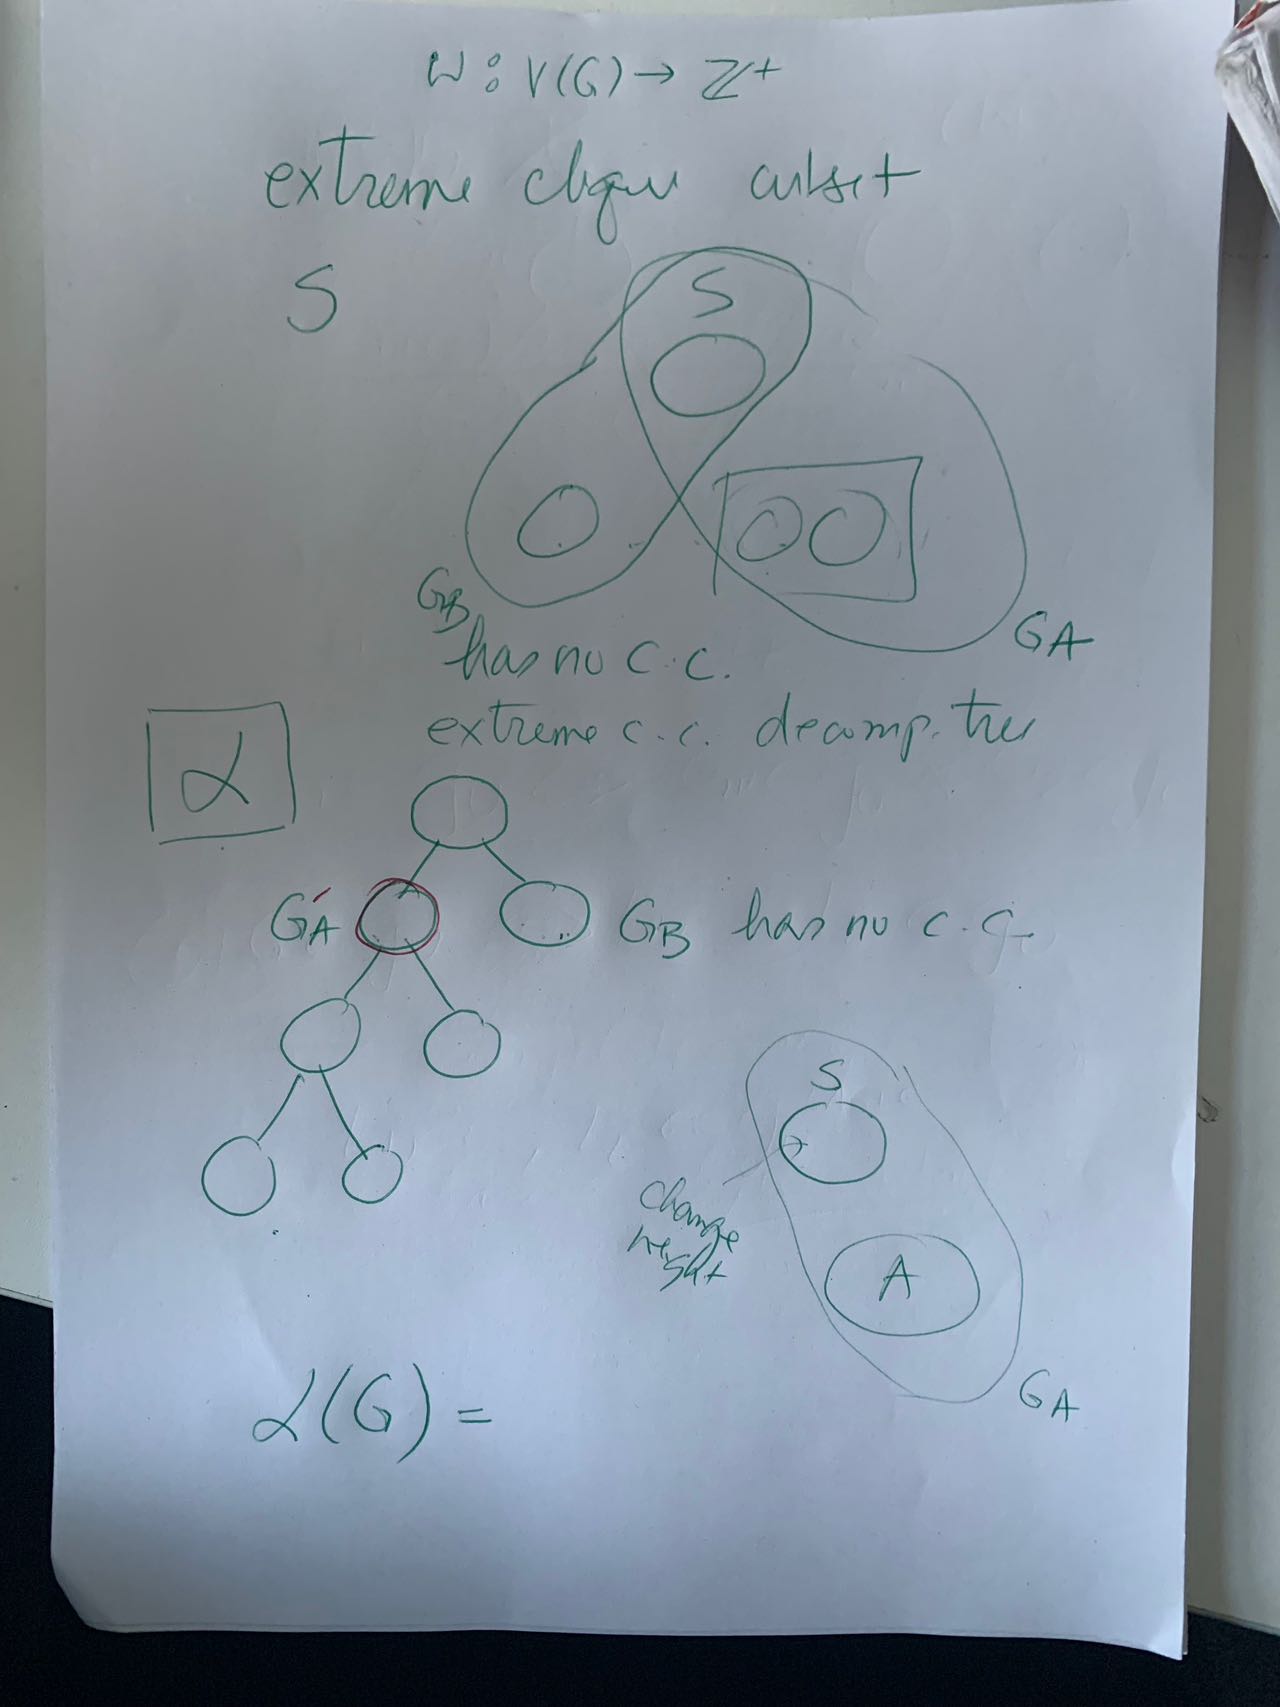 W : V(G) → ℤ+
extreme clique cutset
S
S
GB
GA
has no c.c.
extreme c.c. decomp. tree
α
G'A
GB has no c.c.
S
change
weight
A
GA
α(G) =